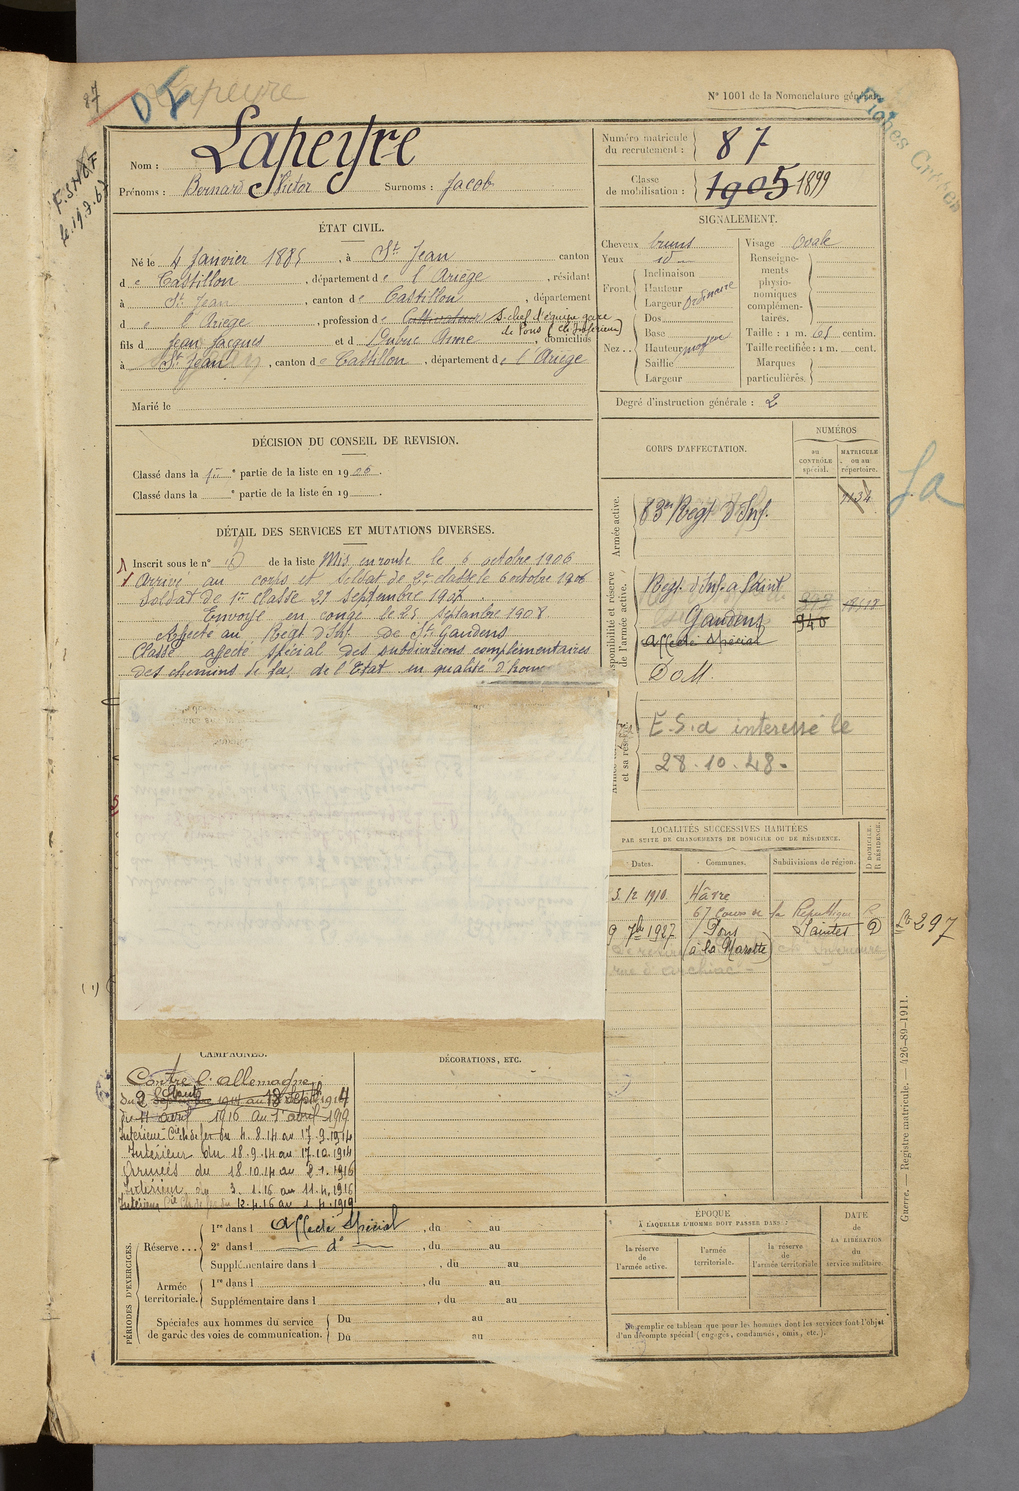 87
D I
Lapeyre
N° 1001 de la Nomenclature générale.
Fiches
Nom : Lapeyre
Prénoms : Bernard Victor Surnoms : Jacob
Numéro matricule du recrutement : 87
Classe de mobilisation : 1905 1899
ÉTAT CIVIL.
Né le 4 Janvier 1885, à St Jean canton
de Castillon, département de l'Ariège, résidant
à St Jean, canton de Castillon, département
d e l'Ariège, profession de Cultivateur S-chef d'équipe gare
de Pons (Ch. Inférieure)
fils de Jean Jacques et d Dubuc Anne, domiciliés
à St Jean, canton de Castillon, département de l'Ariège
Marié le
SIGNALEMENT.
Cheveux bruns
Yeux id
Front. Inclinaison
Hauteur
Largeur ordinaire
Nez... Dos
Base
Hauteur moyen
Saillie
Largeur
Visage Ovale
Renseignements physionomiques complémentaires.
Taille : 1 m. 65 centim.
Taille rectifiée : 1 m. cent.
Marques particulières.
Degré d'instruction générale : 2
DÉCISION DU CONSEIL DE REVISION.
Classé dans la 1re e partie de la liste en 1906.
Classé dans la e partie de la liste en 19 .
DÉTAIL DES SERVICES ET MUTATIONS DIVERSES.
Inscrit sous le n° de la liste Mis en route le 6 octobre 1906
Arrivé au corps et soldat de 2e classe le 6 octobre 1906
Soldat de 1re classe 27 septembre 1907.
Envoyé en congé le 25 septembre 1908
Affecté au Regt d'Inf. de St Gaudens
Classé affecté spécial des subdivisions complémentaires
des chemins de fer de l'Etat en qualité d'homme
CORPS D'AFFECTATION.
NUMÉROS
au CONTRÔLE spécial.
MATRICULE ou au répertoire.
Armée active.
83me Regt d'Inf. 1134
Disponibilité et réserve de l'armée active.
Regt d'Inf. a Saint
Gaudens
940
affecté spécial
D.M.
et sa réserve.
E.S.a interessé le
28.10.48.
fa
LOCALITÉS SUCCESSIVES HABITÉES
PAR SUITE DE CHANGEMENTS DE DOMICILE OU DE RÉSIDENCE.
Dates. Communes. Subdivisions de région. D DOMICILE. R RÉSIDENCE.
3.12.1910 Hâvre
67 Cours de la République R
9 7bre 1927 Pons Saintes D
(à la Marotte)
rue d'archiac
297
CAMPAGNES.
Contre l'allemagne
Du 2 Août 1914 au 18 Sept 1914
Du 11 avril 1916 au 1 avril 1919
Intérieur Cie ch de fer du 4.8.14 au 17.9.1914
Intérieur du 18.9.14 au 17.10.1914
Armées du 18.10.14 au 2.1.1916
Intérieur du 3.1.16 au 11.4.1916
Intérieur Cie Ch de fer du 12.4.16 au 1.4.1919
DÉCORATIONS, ETC.
PÉRIODES D'EXERCICES.
Réserve... 1re dans l affecté Spécial, du au
2e dans l d°, du au
Supplémentaire dans l, du au
Armée territoriale. 1re dans l, du au
Supplémentaire dans l, du au
Spéciales aux hommes du service de garde des voies de communication. Du au
Du au
ÉPOQUE
À LAQUELLE L'HOMME DOIT PASSER DANS :
la réserve de l'armée active.
l'armée territoriale.
la réserve de l'armée territoriale
DATE de LA LIBÉRATION du service militaire.
Ne remplir ce tableau que pour les hommes dont les services font l'objet
d'un décompte spécial (engagés, condamnés, omis, etc.).
Guerre. — Registre matricule. — 426-89-1911.